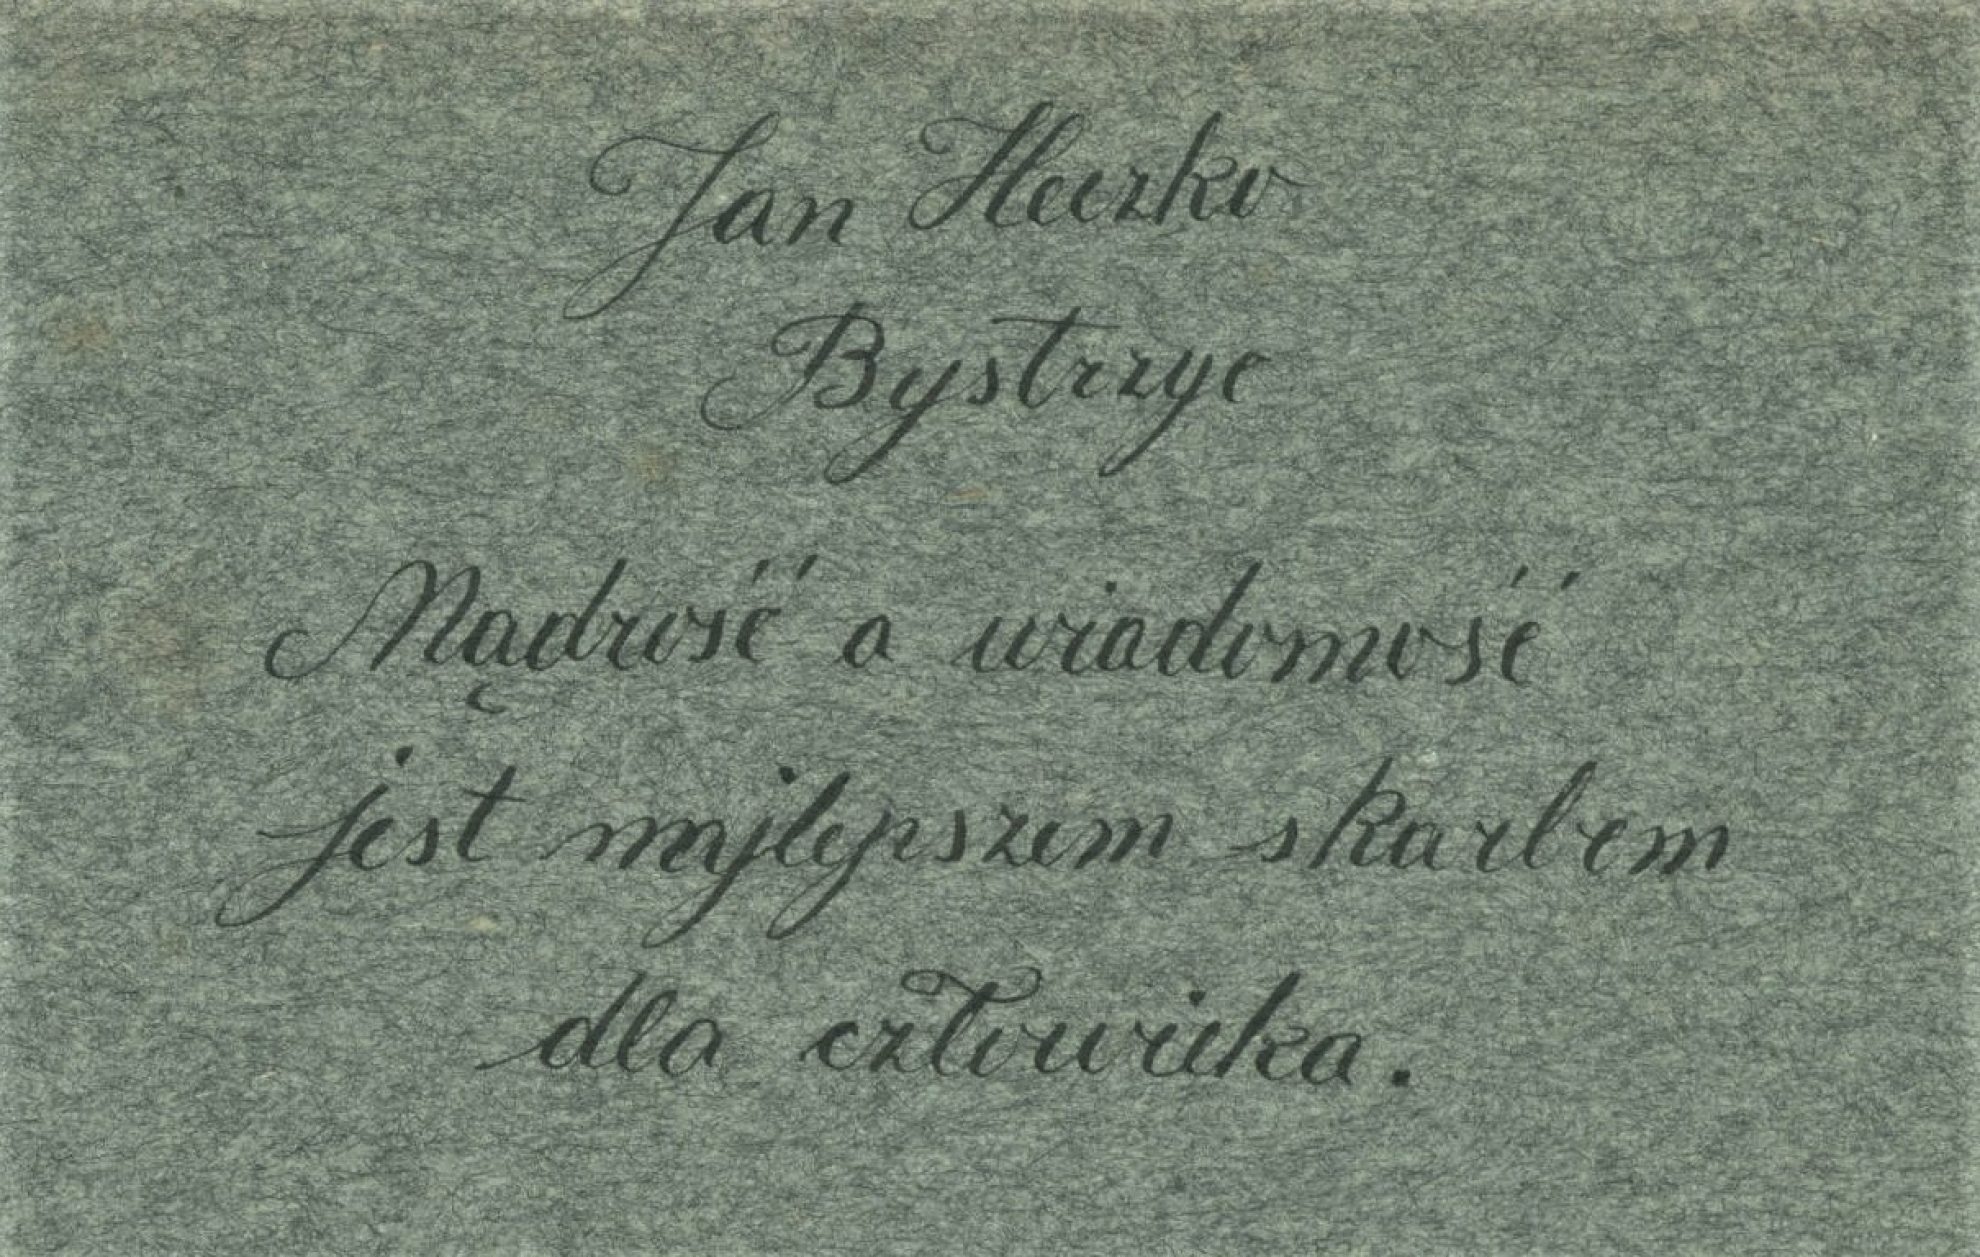 Jan Heczko
Bystrzyc
Mądrość a wiadomość
jest najlepszem skarbem
dla człowieka.